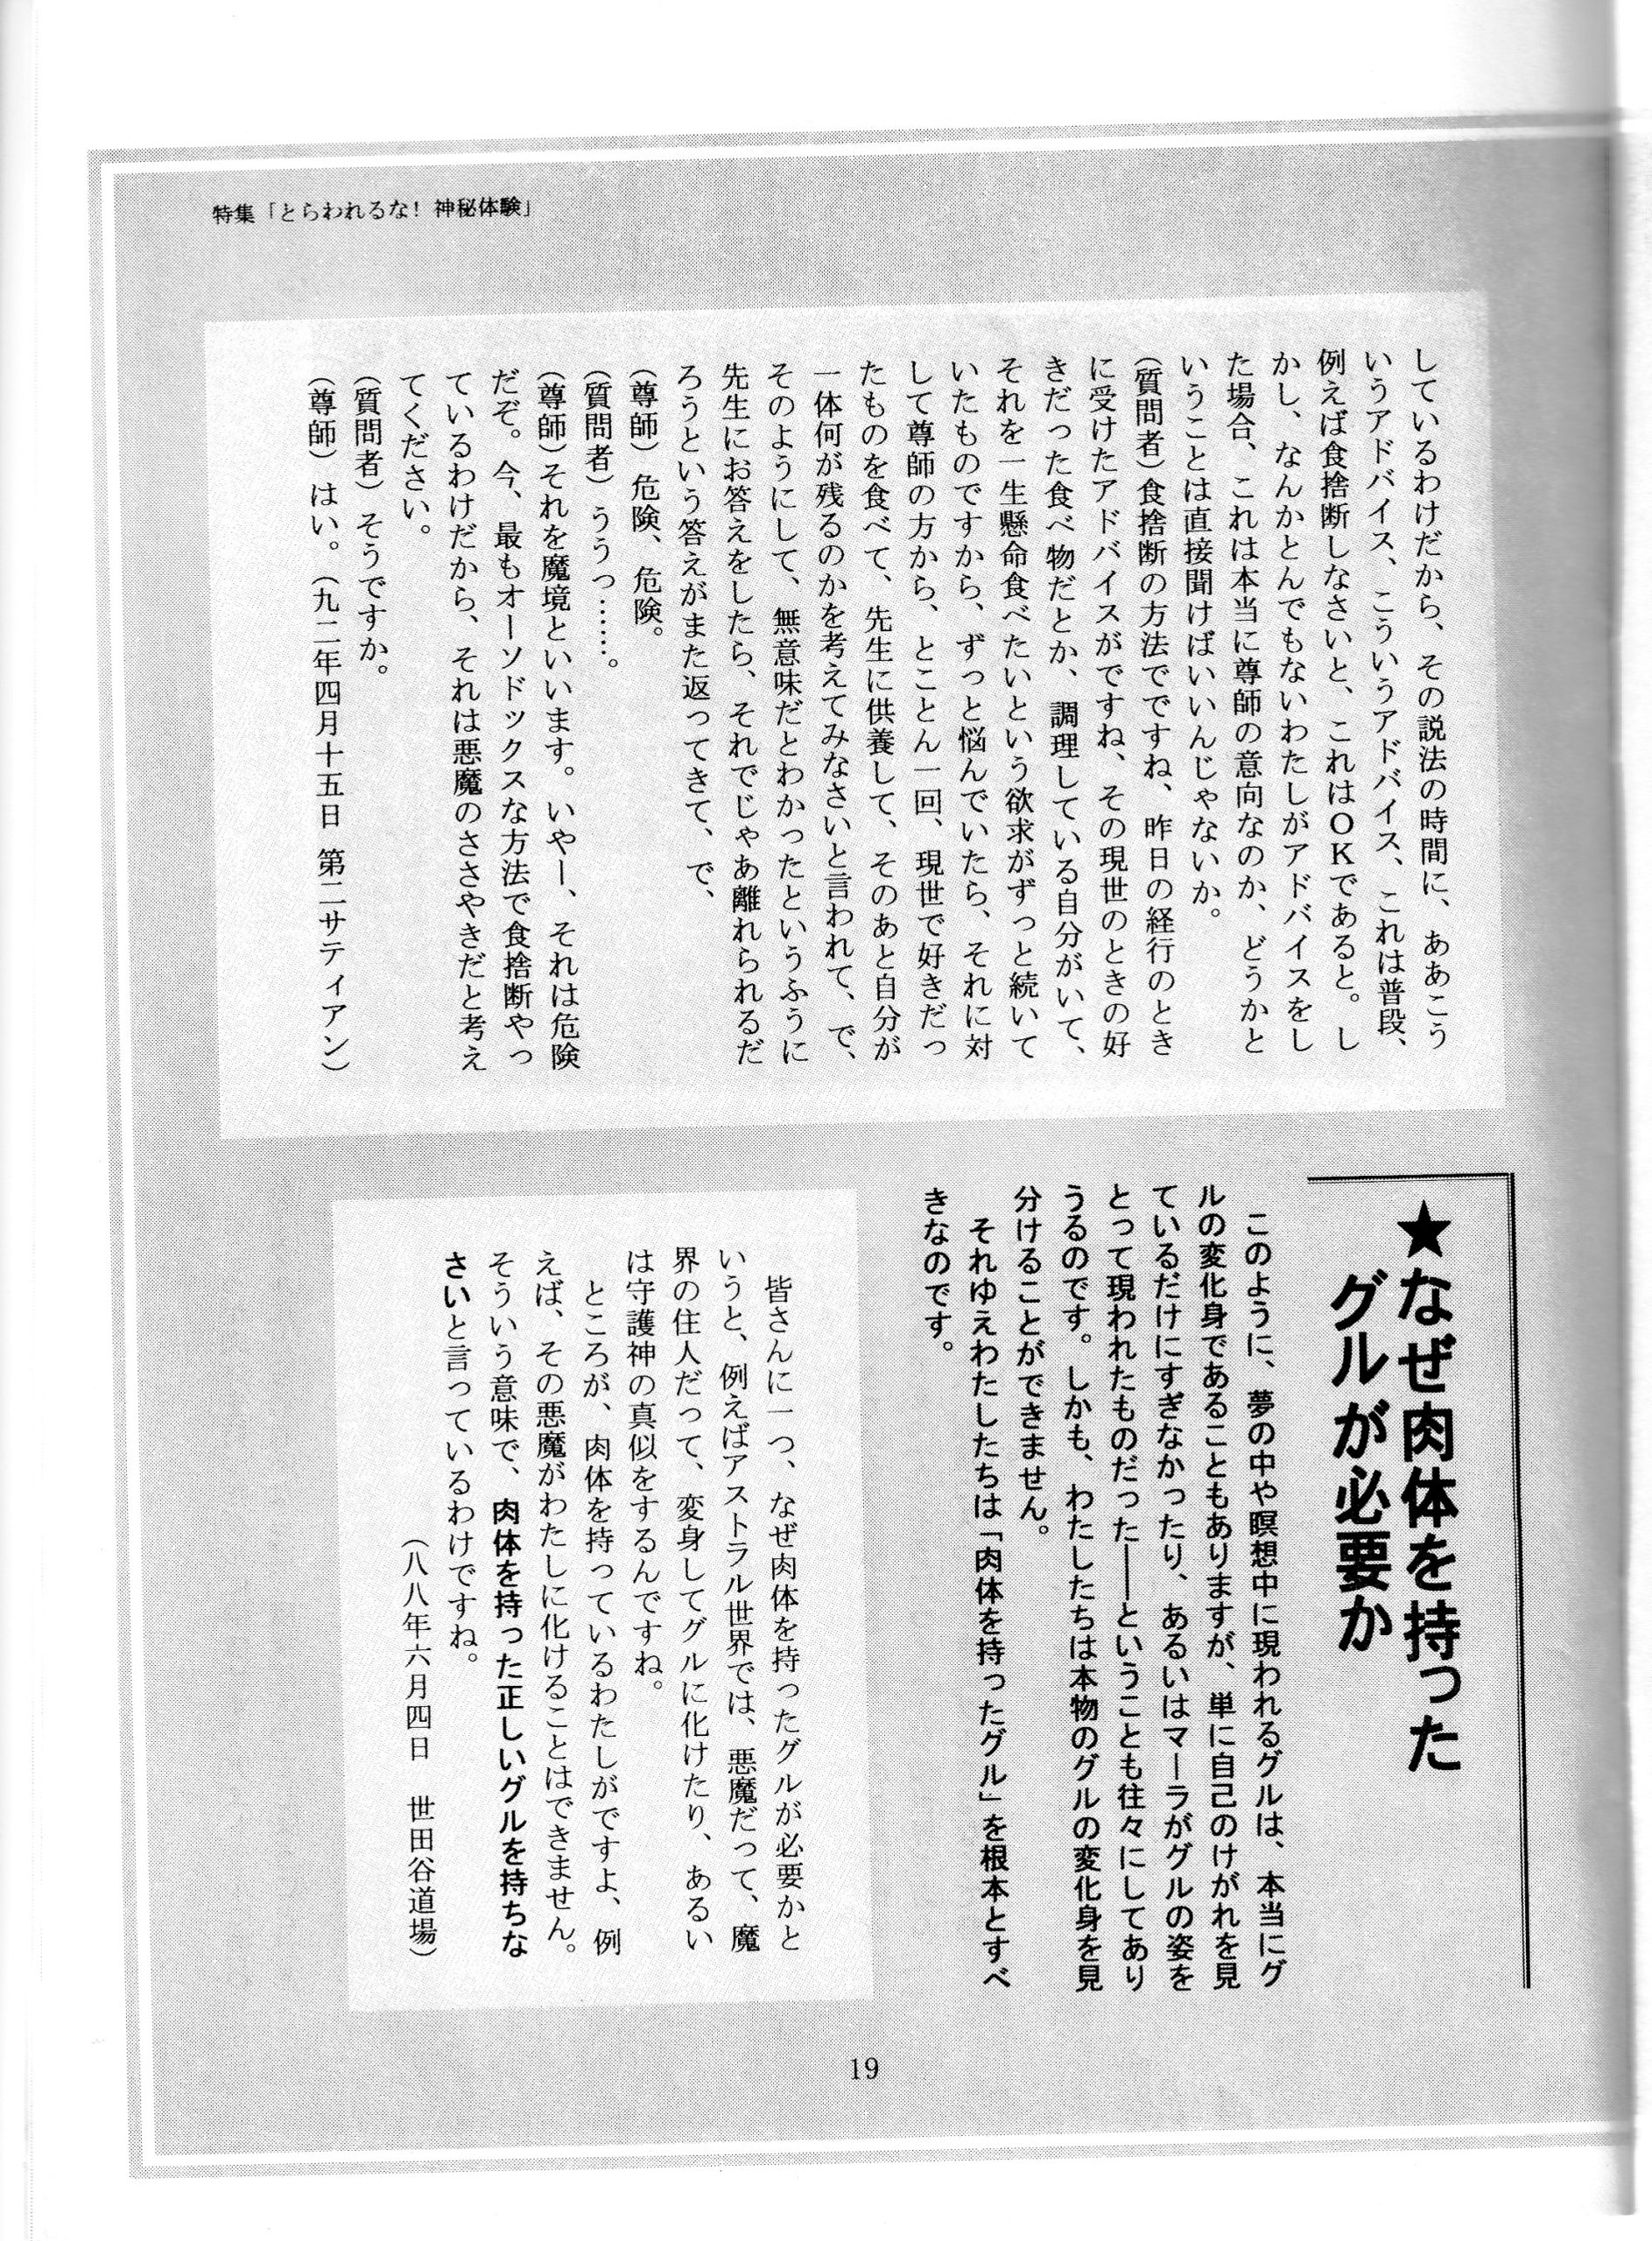 特集「とらわれるな！神秘体験」
しているわけだから、その説法の時間に、ああこう
いうアドバイス、こういうアドバイス、これは普段、
例えば食捨断しなさいと、これはＯＫであると。し
かし、なんかとんでもないわたしがアドバイスをし
た場合、これは本当に尊師の意向なのか、どうかと
いうことは直接聞けばいいんじゃないか。
（質問者）食捨断の方法でですね、昨日の経行のとき
に受けたアドバイスがですね、その現世のときの好
きだった食べ物だとか、調理している自分がいて、
それを一生懸命食べたいという欲求がずっと続いて
いたものですから、ずっと悩んでいたら、それに対
して尊師の方から、とことん一回、現世で好きだっ
たものを食べて、先生に供養して、そのあと自分が
一体何が残るのかを考えてみなさいと言われて、で、
そのようにして、無意味だとわかったというふうに
先生にお答えをしたら、それでじゃあ離れられるだ
ろうという答えがまた返ってきて、で、
（尊師）危険、危険。
（質問者）ううっ……。
（尊師）それを魔境といいます。いやー、それは危険
だぞ。今、最もオーソドックスな方法で食捨断やっ
ているわけだから、それは悪魔のささやきだと考え
てください。
（質問者）そうですか。
（尊師）はい。（九二年四月十五日 第二サティアン）
★なぜ肉体を持った
グルが必要か
このように、夢の中や瞑想中に現われるグルは、本当にグ
ルの変化身であることもありますが、単に自己のけがれを見
ているだけにすぎなかったり、あるいはマーラがグルの姿を
とって現われたものだった――ということも往々にしてあり
うるのです。しかも、わたしたちは本物のグルの変化身を見
分けることができません。
それゆえわたしたちは「肉体を持ったグル」を根本とすべ
きなのです。
皆さんに一つ、なぜ肉体を持ったグルが必要かと
いうと、例えばアストラル世界では、悪魔だって、魔
界の住人だって、変身してグルに化けたり、あるい
は守護神の真似をするんですね。
ところが、肉体を持っているわたしがですよ、例
えば、その悪魔がわたしに化けることはできません。
そういう意味で、肉体を持った正しいグルを持ちな
さいと言っているわけですね。
（八八年六月四日 世田谷道場）
19